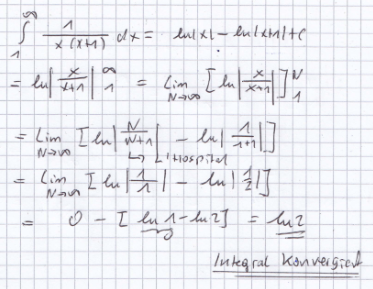 ∫₁^∞ 1/(x(x+1)) dx = ln|x| - ln|x+1| + c
= ln|x/(x+1)| ₁^∞ = lim N→∞ [ln|x/(x+1)|]₁^N
= lim N→∞ [ln|N/(N+1)| - ln|1/(1+1)|]
↳ L'Hospital
= lim N→∞ [ln|1/1| - ln|1/2|]
= 0 - [ln 1 - ln 2] = ln 2
0
Integral Konvergiert